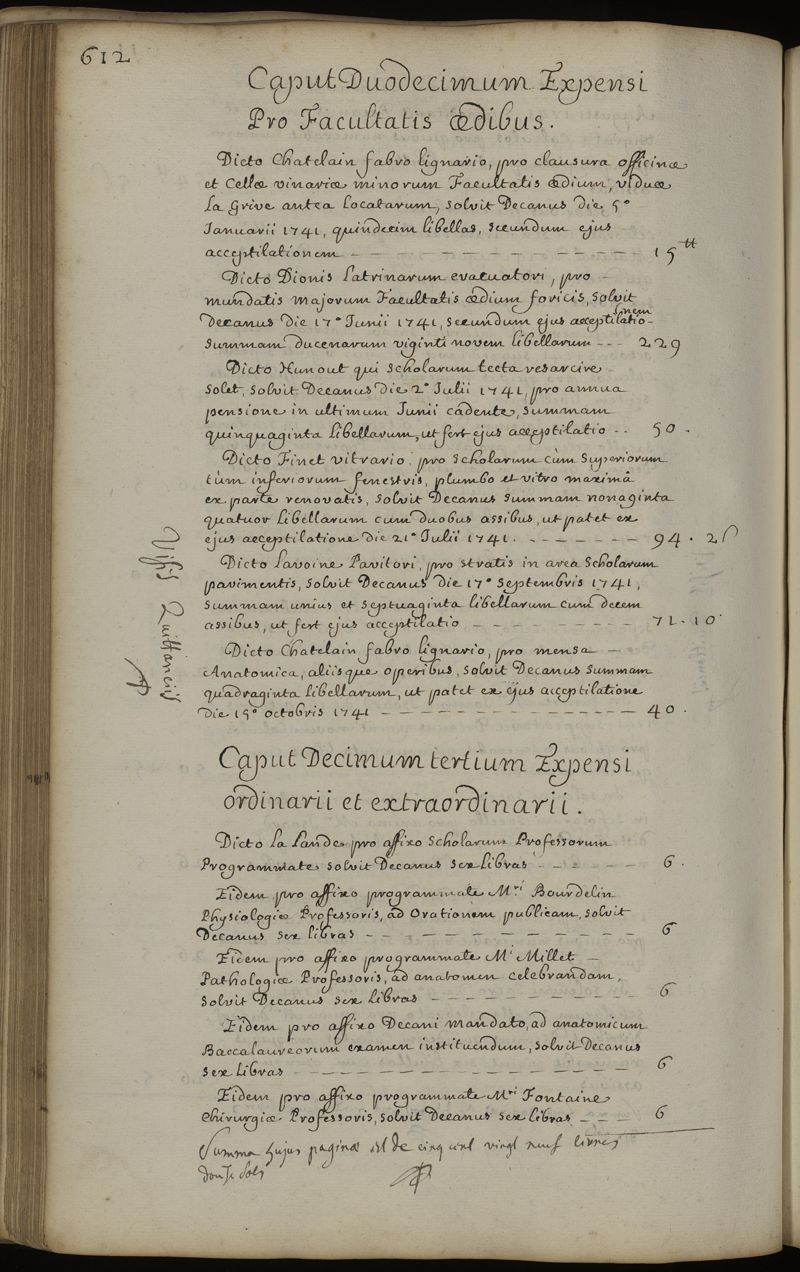 612
Caput Duodecimum Expensi
Pro Facultatis ædibus.
Dicto Chatelain fabro lignario, pro clausura officinæ
et Cellæ vinariæ minorum Facultatis ædium, viduæ
La Grive antea Locatarum, solvit Decanus die 5ª
Januarii 1741, quindecim libellas, secundum ejus
acceptilationem — — — — — — — — — — 15tt
Dicto Dionis Latrinarum evacuatori, pro —
mundatis majorum Facultatis ædium foricis, solvit
Decanus die 17ª Junii 1741, secundum ejus acceptilatio-nem
summam ducenarum viginti novem libellarum - - - 229
Dicto Hunout qui scholarum tecta resarcire
solet, solvit Decanus die 2ª Julii 1741, pro annua
pensione in ultimum Junii cadente, summam
quinquaginta libellarum, ut fert ejus acceptilatio - - 50 .
Dicto Finet vitrario, pro scholarum cùm superiorum
tùm inferiorum fenestris, plumbo et vitro maximâ
ex parte renovatis, solvit Decanus summam nonaginta
quatuor libellarum cum duobus assibus, ut patet ex
ejus acceptilatione die 21ª Julii 1741. - - - - - - - 94 . 2 ſ
Dicto Lavoine Pavitori, pro stratis in area scholarum
pavimentis, solvit Decanus die 17ª septembris 1741,
summam unius et septuaginta libellarum cum decem
assibus, ut fert ejus acceptilatio — — — — — — — 71 . 10 .
Dicto Chatelain fabro lignario, pro mensa —
Anatomica, aliisque operibus, solvit Decanus summam
quadraginta libellarum, ut patet ex ejus acceptilatione
die 15ª octobris 1741 — — — — — — — — — — — 40 .
Visis Quittanciis
Caput Decimum tertium Expensi
ordinarii et extraordinarii.
Dicto La Lande, pro affixo scholarum Professorum
Programmate solvit Decanus sex libras — — — — 6 .
Eidem pro affixo programmate Mri Bourdelin
Physiologiæ Professoris, ad Orationem publicam, solvit
Decanus sex libras — — — — — — — — — — 6
Eidem pro affixo programmate Mi Millet —
Pathologiæ Professoris, ad anatomen celebrandam,
solvit Decanus sex libras — — — — — — — — — 6
Eidem pro affixo Decani mandato, ad anatomicum
Baccalaureorum examen instituendum, solvit Decanus
sex libras — — — — — — — — — — — — 6
Eidem pro affixo programmate Mri Fontaine
chirurgiæ Professoris, solvit Decanus sex libras — — — 6
Summa hujus paginæ est de cinq cent vingt neuf livres
douze sols